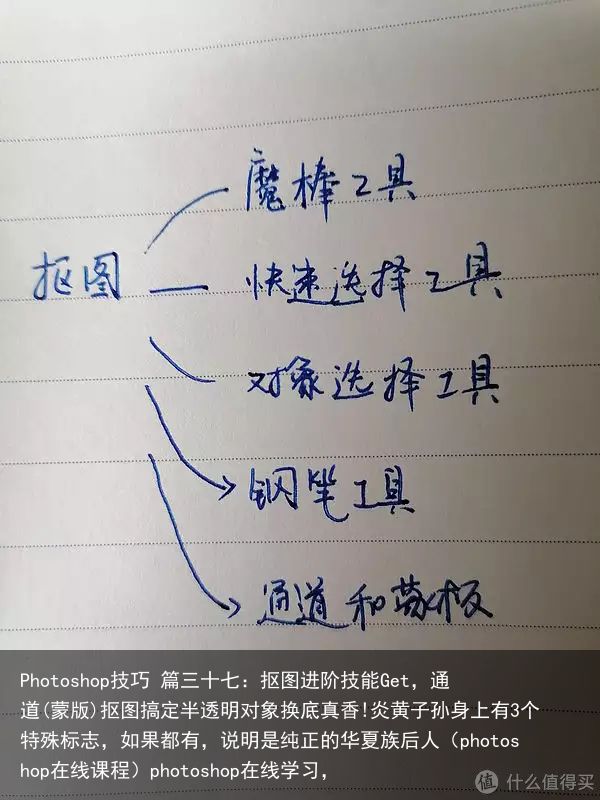 魔棒工具
抠图
快速选择工具
对象选择工具
钢笔工具
通道和蒙板
Photoshop技巧 篇三十七：抠图进阶技能Get，通
道(蒙版)抠图搞定半透明对象换底真香!炎黄子孙身上有3个
特殊标志，如果都有，说明是纯正的华夏族后人（photos
hop在线课程）photoshop在线学习，
值 什么值得买